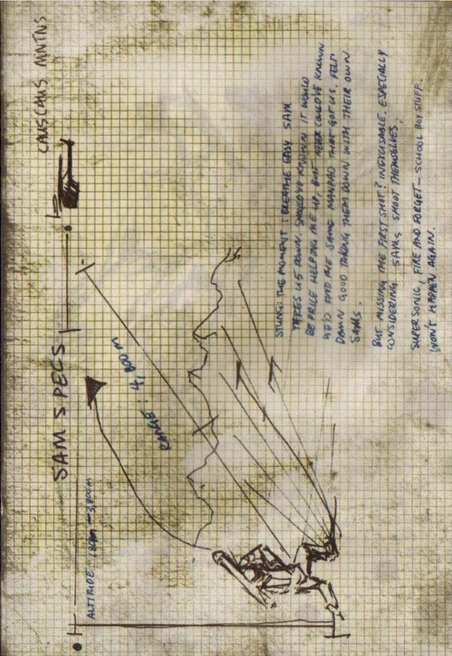 CAUSCAUS MNTNS
SAM SPECS
ALTITUDE: 180m - 3,800m
RANGE: 4,800m
STUNG THE MOMENT: BREATHE EASY SAM
TAKES US DOWN. SHOULD'VE KNOWN IT WOULD
BE PRICE HELPING ME UP, BUT NEVER COULD'VE KNOWN
WE'D FIND THE SAME MANPAD THAT GOT US. FELT
DAMN GOOD TAKING THEM DOWN WITH THEIR OWN
SAMS.
BUT MISSING THE FIRST SHOT? INEXCUSABLE, ESPECIALLY
CONSIDERING SAMS SHOOT THEMSELVES.
SUPERSONIC, FIRE AND FORGET - SCHOOL BOY STUFF.
WON'T HAPPEN AGAIN.